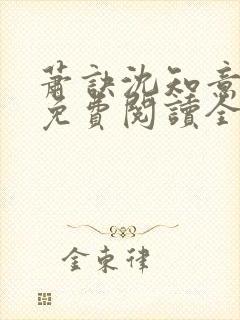 蕭訣沈知意
免費閱讀全
金東律